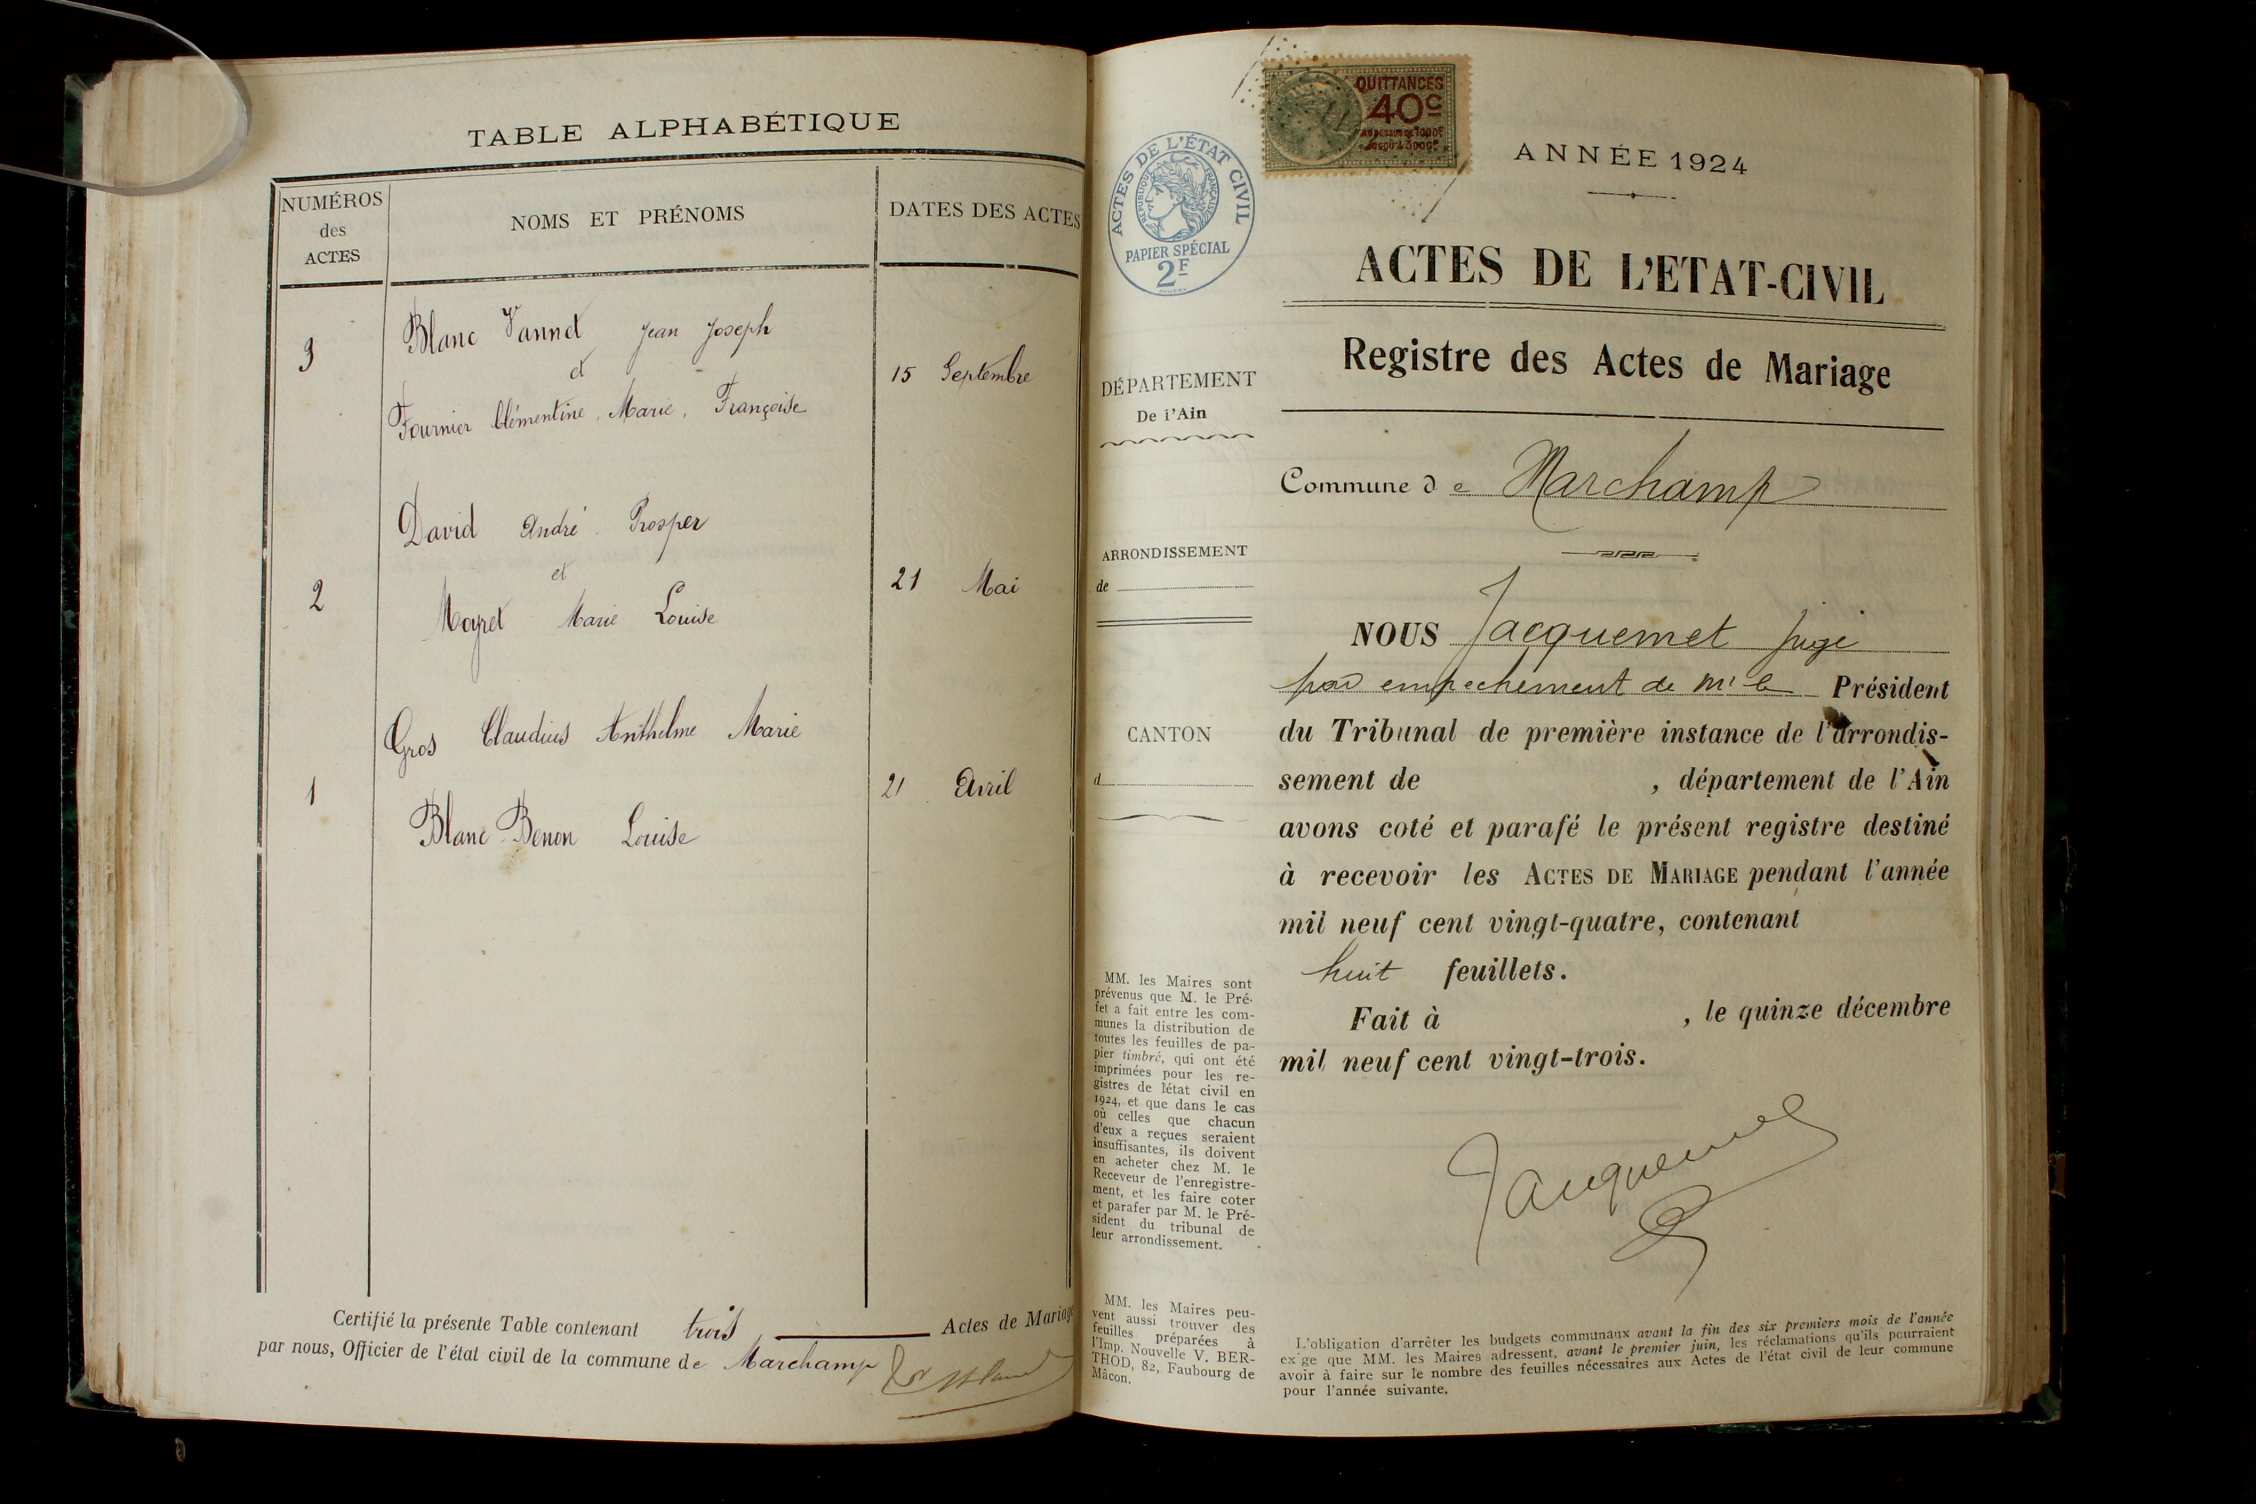 TABLE ALPHABÉTIQUE
NUMÉROS
des
ACTES
NOMS ET PRÉNOMS
DATES DES ACTES
3
Blanc Vannet Jean Joseph
et
Fournier Clémentine, Marie, Françoise
15 Septembre
David André Prosper
2
et
Mayret Marie Louise
21 Mai
Gros Claudius Anthelme Marie
1
21 Avril
Blanc Benon Louise
Certifié la présente Table contenant trois Actes de Mariage
par nous, Officier de l'état civil de la commune de Marchamp
QUITTANCES
40c
ACTES DE L'ÉTAT CIVIL
RÉPUBLIQUE FRANÇAISE
PAPIER SPÉCIAL
2F
DÉPARTEMENT
De i'Ain
ARRONDISSEMENT
de
CANTON
d
MM. les Maires sont
prévenus que M. le Pré-
fet a fait entre les com-
munes la distribution de
toutes les feuilles de pa-
pier timbré, qui ont été
imprimées pour les re-
gistres de l'état civil en
1924, et que dans le cas
où celles que chacun
d'eux a reçues seraient
insuffisantes, ils doivent
en acheter chez M. le
Receveur de l'enregistre-
ment, et les faire coter
et parafer par M. le Pré-
sident du tribunal de
leur arrondissement.
MM. les Maires peu-
vent aussi trouver des
feuilles préparées à
l'Imp. Nouvelle V. BER-
THOD, 82, Faubourg de
Mâcon.
ANNÉE 1924
ACTES DE L'ETAT-CIVIL
Registre des Actes de Mariage
Commune de Marchamp
NOUS Jacquemet juge
par empechement de Mr le Président
du Tribunal de première instance de l'arrondis-
sement de , département de l'Ain
avons coté et parafé le présent registre destiné
à recevoir les ACTES DE MARIAGE pendant l'année
mil neuf cent vingt-quatre, contenant
huit feuillets.
Fait à , le quinze décembre
mil neuf cent vingt-trois.
Jacquemet
L'obligation d'arrêter les budgets communaux avant la fin des six premiers mois de l'année
ex'ge que MM. les Maires adressent, avant le premier juin, les réclamations qu'ils pourraient
avoir à faire sur le nombre des feuilles nécessaires aux Actes de l'état civil de leur commune
pour l'année suivante.